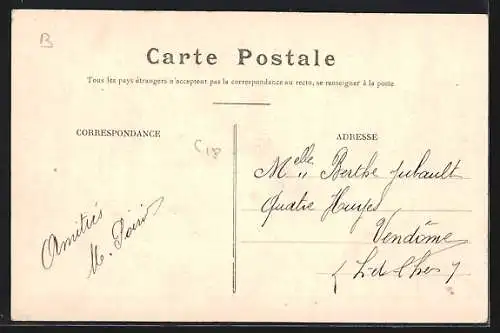 B
Carte Postale
Tous les pays étrangers n'acceptent pas la correspondance au recto, se renseigner à la poste
CORRESPONDANCE
ADRESSE
Amitiés
M.
Melle Berthe Jubault
Quatre Huyes
Vendôme
(L. de Cher)